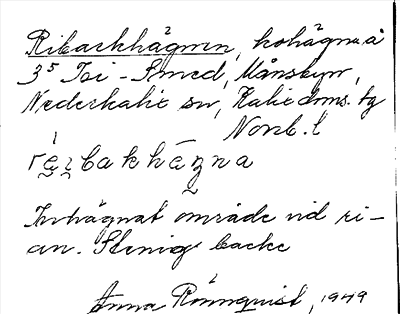 Ribackhägnen, kohägna å
3⁵ Toi-Smed, Månsbyn,
Nederkalix sn, Kalix doms. tg
Norrb. l
rę́i̯bakhǟgna
Inhägnat område vid ri-
an. Stenig backe
Anna Rönnquist, 1949